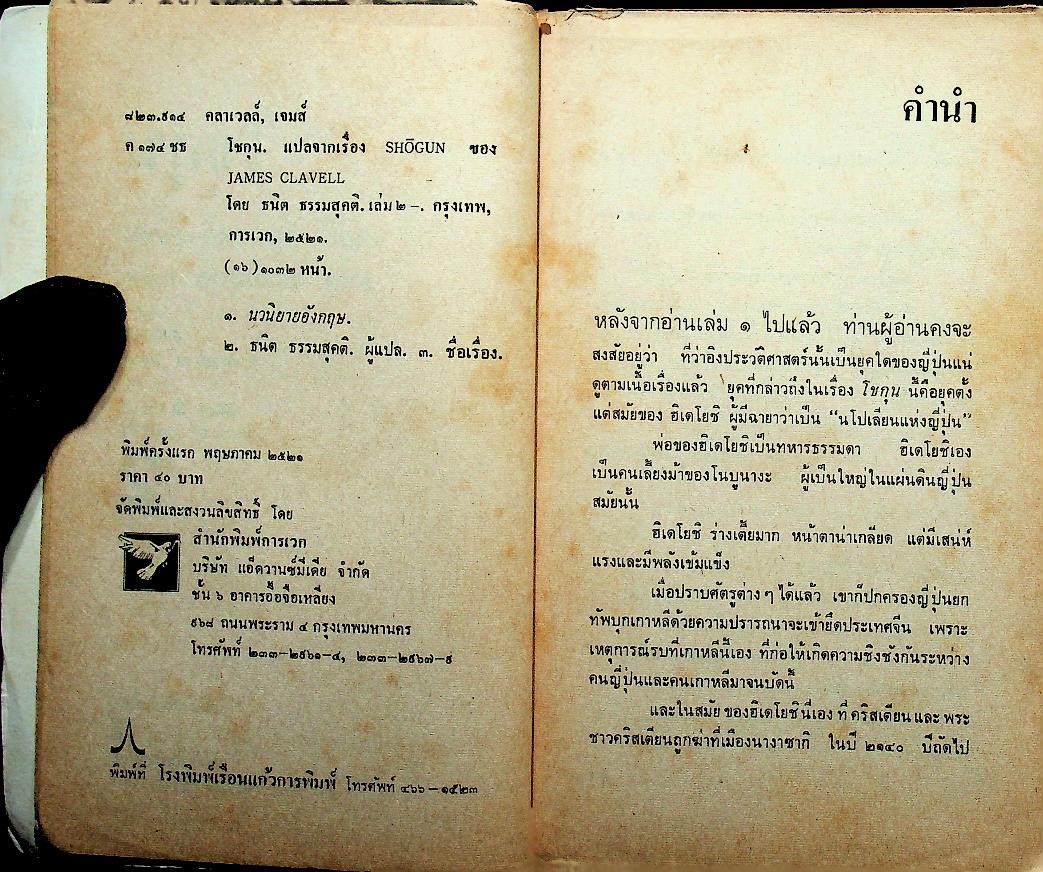 ๘๒๓.๙๑๔ คลาเวลล์, เจมส์
ค ๑๗๔ ชธ โชกุน. แปลจากเรื่อง SHŌGUN ของ
JAMES CLAVELL
โดย ธนิต ธรรมสุคติ. เล่ม ๒ –. กรุงเทพ,
การเวก, ๒๕๒๑.
(๑๖) ๑๐๓๒ หน้า.
๑. นวนิยายอังกฤษ.
๒. ธนิต ธรรมสุคติ. ผู้แปล. ๓. ชื่อเรื่อง.
พิมพ์ครั้งแรก พฤษภาคม ๒๕๒๑
ราคา ๔๐ บาท
จัดพิมพ์และสงวนลิขสิทธิ์ โดย
สำนักพิมพ์การเวก
บริษัท แอ๊ดวานซ์มีเดีย จำกัด
ชั้น ๖ อาคารอื้อจือเหลียง
๙๖๘ ถนนพระราม ๔ กรุงเทพมหานคร
โทรศัพท์ ๒๓๓–๒๙๖๑–๔, ๒๓๓–๒๙๖๗–๙
พิมพ์ที่ โรงพิมพ์เรือนแก้วการพิมพ์ โทรศัพท์ ๔๖๖–๑๕๒๓
คำนำ
หลังจากอ่านเล่ม ๑ ไปแล้ว ท่านผู้อ่านคงจะ
สงสัยอยู่ว่า ที่ว่าอิงประวัติศาสตร์นั้นเป็นยุคใดของญี่ปุ่นแน่
ดูตามเนื้อเรื่องแล้ว ยุคที่กล่าวถึงในเรื่อง โชกุน นี้คือยุคตั้ง
แต่สมัยของ ฮิเดโยชิ ผู้มีฉายาว่าเป็น “นโปเลียนแห่งญี่ปุ่น”
พ่อของฮิเดโยชิเป็นทหารธรรมดา ฮิเดโยชิเอง
เป็นคนเลี้ยงม้าของโนบูนางะ ผู้เป็นใหญ่ในแผ่นดินญี่ปุ่น
สมัยนั้น
ฮิเดโยชิ ร่างเตี้ยมาก หน้าตาน่าเกลียด แต่มีเสน่ห์
แรงและมีพลังเข้มแข็ง
เมื่อปราบศัตรูต่าง ๆ ได้แล้ว เขาก็ปกครองญี่ปุ่นยก
ทัพบุกเกาหลีด้วยความปรารถนาจะเข้ายึดประเทศจีน เพราะ
เหตุการณ์รบที่เกาหลีนี้เอง ที่ก่อให้เกิดความชิงชังกันระหว่าง
คนญี่ปุ่นและคนเกาหลีมาจนบัดนี้
และในสมัย ของฮิเดโยชินี่เอง ที่ คริสเตียน และ พระ
ชาวคริสเตียนถูกฆ่าที่เมืองนางาซากิ ในปี ๒๑๔๐ ปีถัดไป